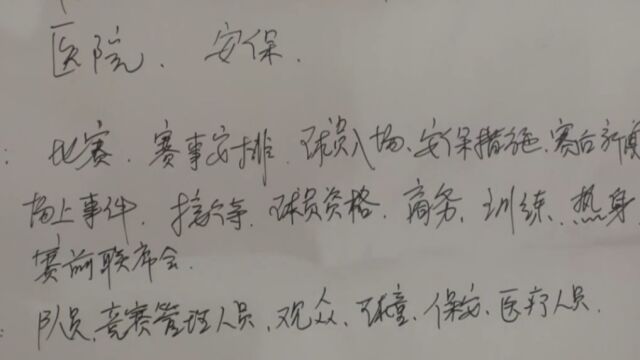 医院、安保.
: 比赛、赛事安排、球员入场、安保措施、赛后新闻
场上事件、接待、球员资格、商务、训练、热身
赛前联席会.
: 队员、竞赛管理人员、观众、球童、保安、医疗人员.